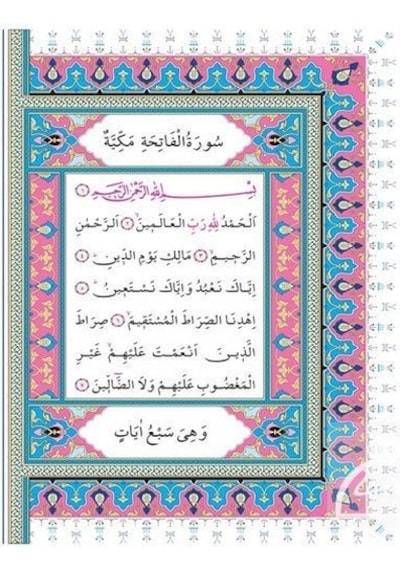 سُورَةُ الْفَاتِحَةِ مَكِّيَّةٌ
بِسْمِ اللهِ الرَّحْمٰنِ الرَّحِيمِ ﴿١﴾
اَلْحَمْدُ لِلهِ رَبِّ الْعَالَمِينَ ﴿٢﴾ اَلرَّحْمٰنِ
الرَّحِيمِ ﴿٣﴾ مَالِكِ يَوْمِ الدِّينِ ﴿٤﴾
اِيَّاكَ نَعْبُدُ وَاِيَّاكَ نَسْتَعِينُ ﴿٥﴾
اِهْدِنَا الصِّرَاطَ الْمُسْتَقِيمَ ﴿٦﴾ صِرَاطَ
الَّذِينَ اَنْعَمْتَ عَلَيْهِمْ غَيْرِ
الْمَغْضُوبِ عَلَيْهِمْ وَلَا الضَّٓالِّينَ ﴿٧﴾
وَهِىَ سَبْعُ اٰيَاتٍ